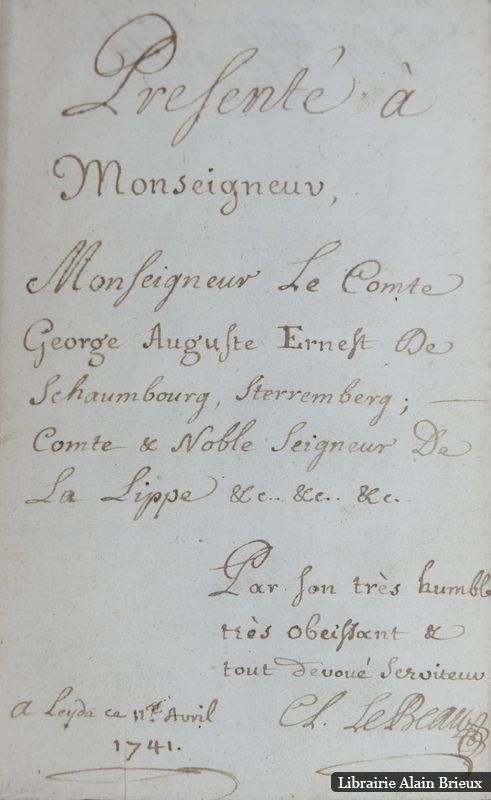 Presenté à
Monseigneur,
Monseigneur Le Comte
George Auguste Ernest De
Schaumbourg, Sterremberg;
Comte & Noble Seigneur De
La Lippe &c.. &c.. &c.
Par son très humble
très obeissant &
tout devoué serviteur
Cl. LeBeau
a Leyde ce 11.e Avril
1741.
Librairie Alain Brieux